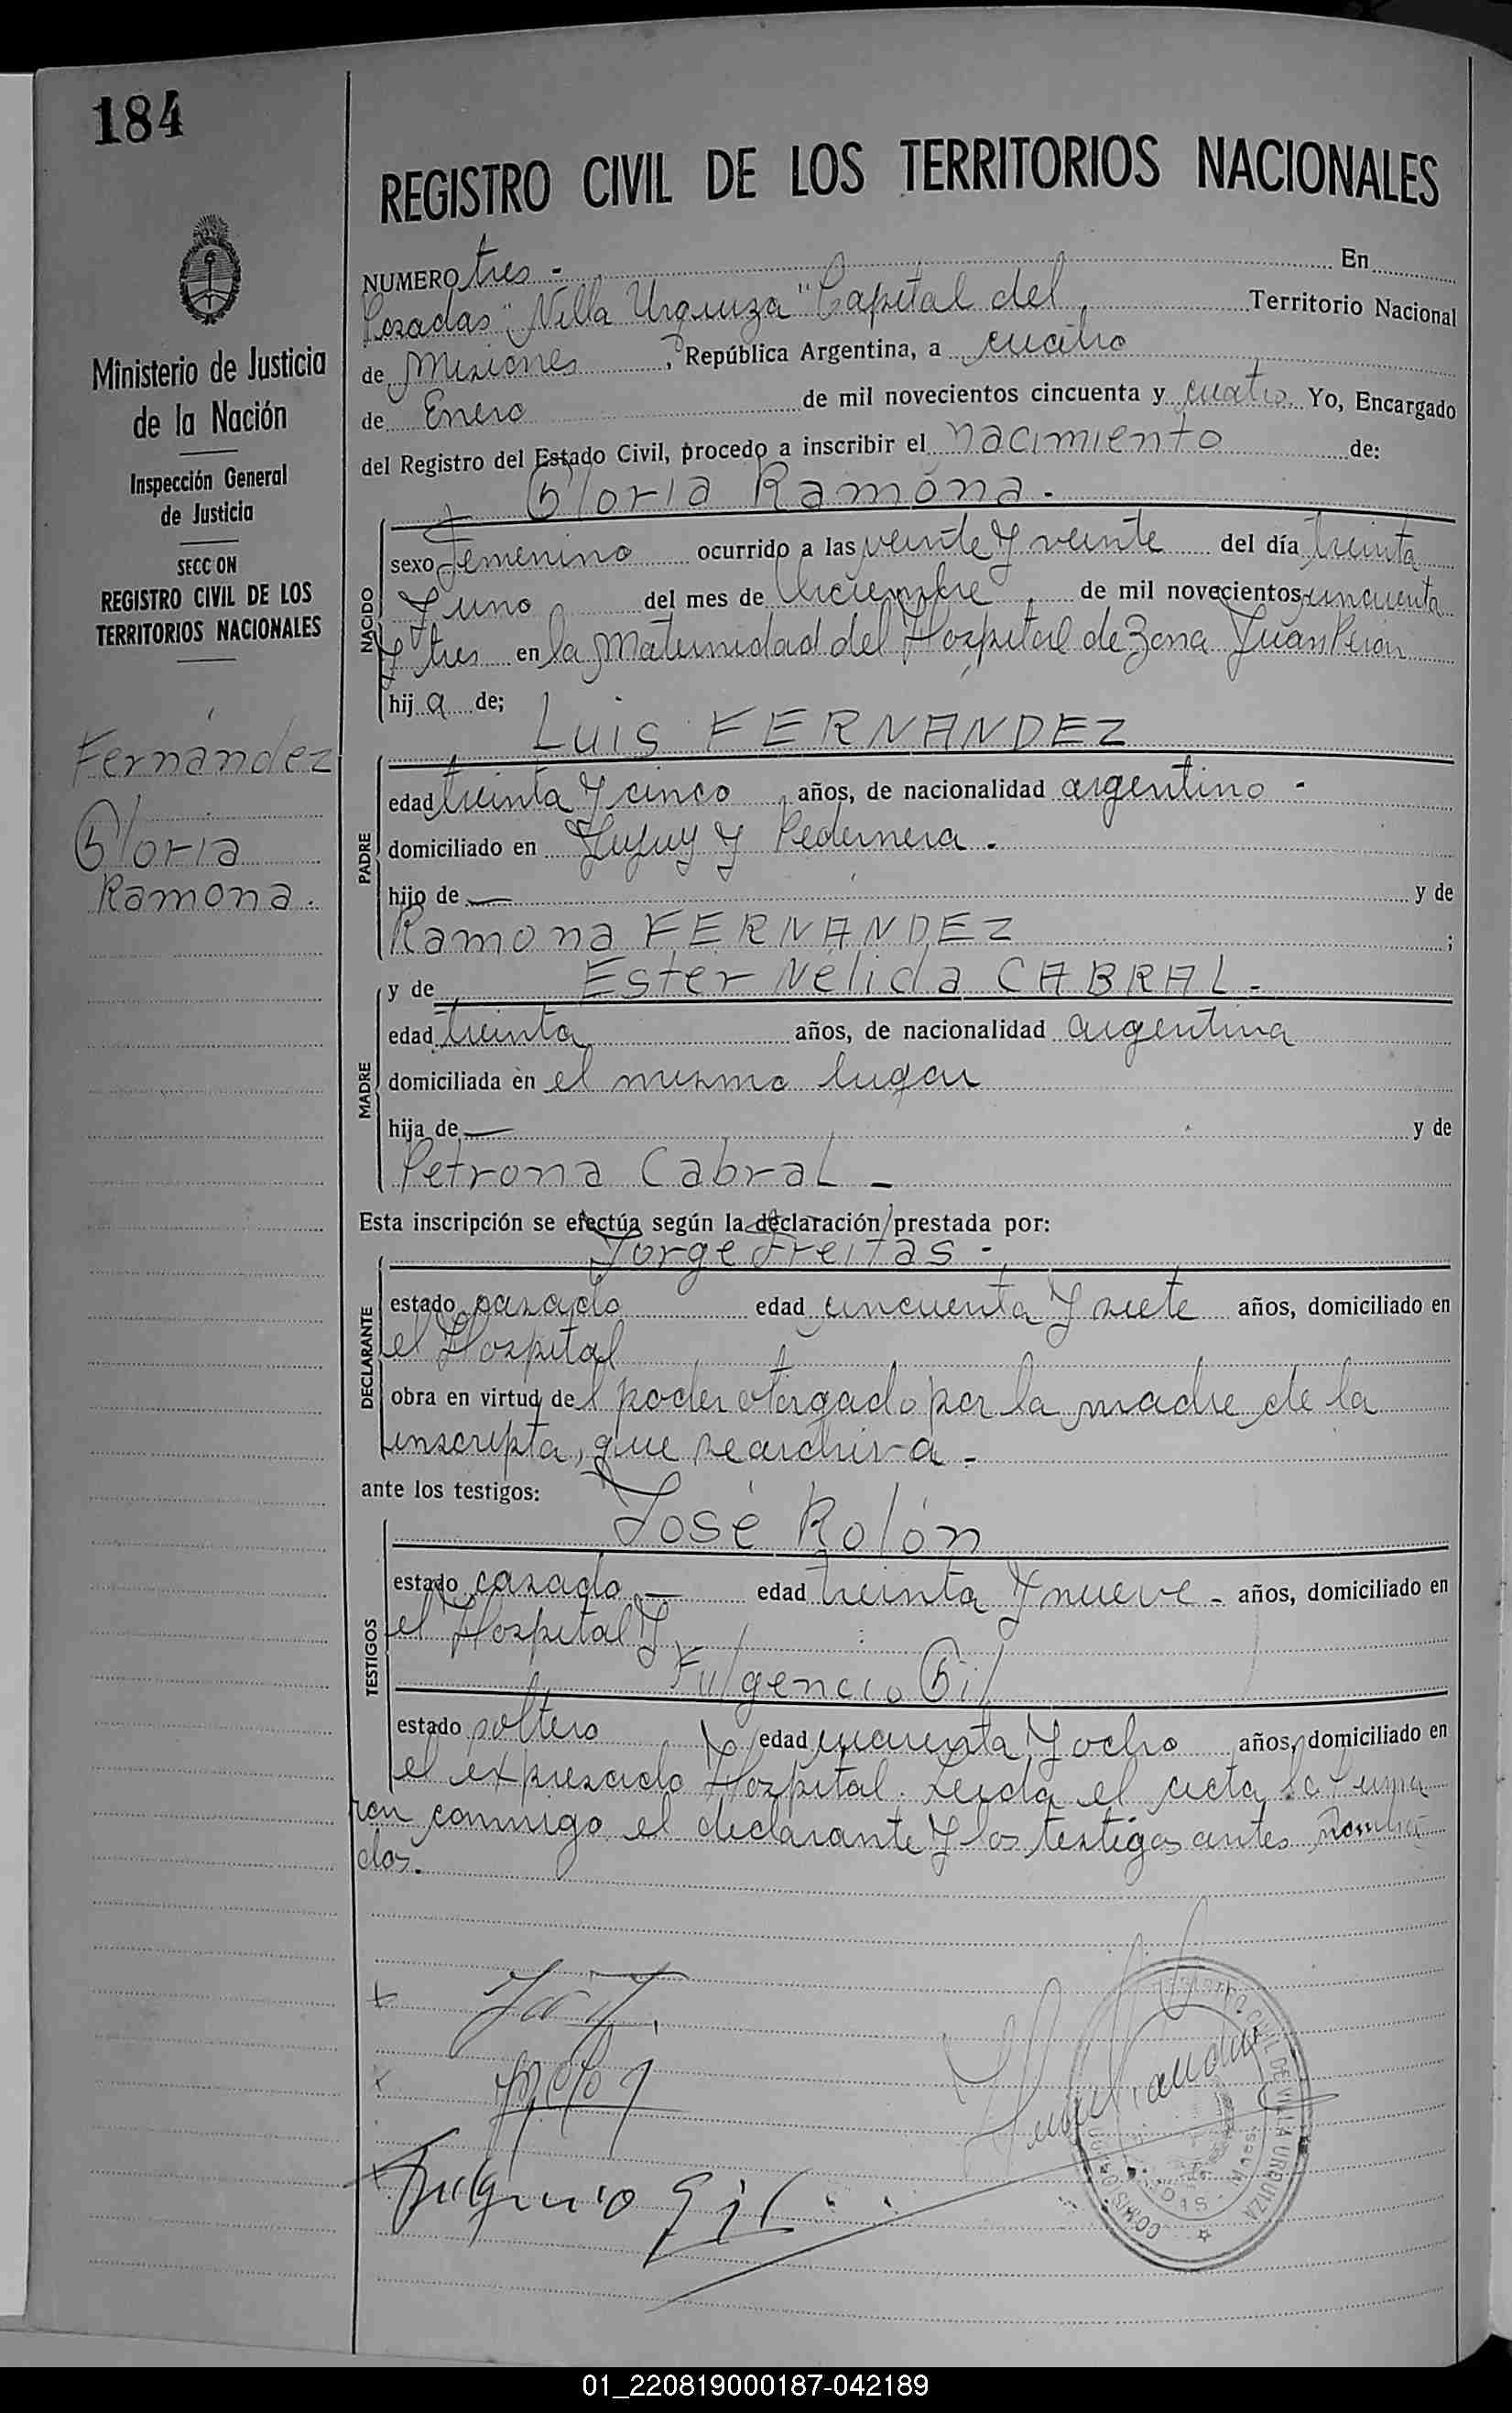 184
REGISTRO CIVIL DE LOS TERRITORIOS NACIONALES
Ministerio de Justicia
de la Nación
Inspección General
de Justicia
SECCION
REGISTRO CIVIL DE LOS
TERRITORIOS NACIONALES
Fernández
Gloria
Ramona.
NUMERO tres - En
Posadas "Villa Urquiza" Capital del Territorio Nacional
de Misiones, República Argentina, a cuatro
de Enero de mil novecientos cincuenta y cuatro Yo, Encargado
del Registro del Estado Civil, procedo a inscribir el nacimiento de:
Gloria Ramona.-
NACIDO
sexo femenino ocurrido a las veinte y veinte del día treinta
y uno del mes de Diciembre de mil novecientos cincuenta
y tres en la Maternidad del Hospital de Zona Juan Perón
hija de;
Luis FERNANDEZ
PADRE
edad treinta y cinco años, de nacionalidad argentino -
domiciliado en Jujuy y Pedernera.
hijo de — y de
Ramona FERNANDEZ ;
y de Ester Nélida CABRAL -
MADRE
edad treinta años, de nacionalidad argentina
domiciliada en el mismo lugar
hija de — y de
Petrona Cabral -
Esta inscripción se efectúa según la declaración prestada por:
Jorge Freitas -
DECLARANTE
estado casado edad cincuenta y siete años, domiciliado en
el Hospital
obra en virtud del poder otorgado por la madre de la
inscripta, que se archiva -
ante los testigos:
José Rolón
TESTIGOS
estado casado — edad treinta y nueve - años, domiciliado en
el Hospital y
Fulgencio Gil
estado soltero edad cuarenta y ocho años, domiciliado en
el expresado Hospital. Leida el acta la firma
ron conmigo el declarante y los testigos antes nombra
dos.
Fulgencio Gil
01_220819000187-042189